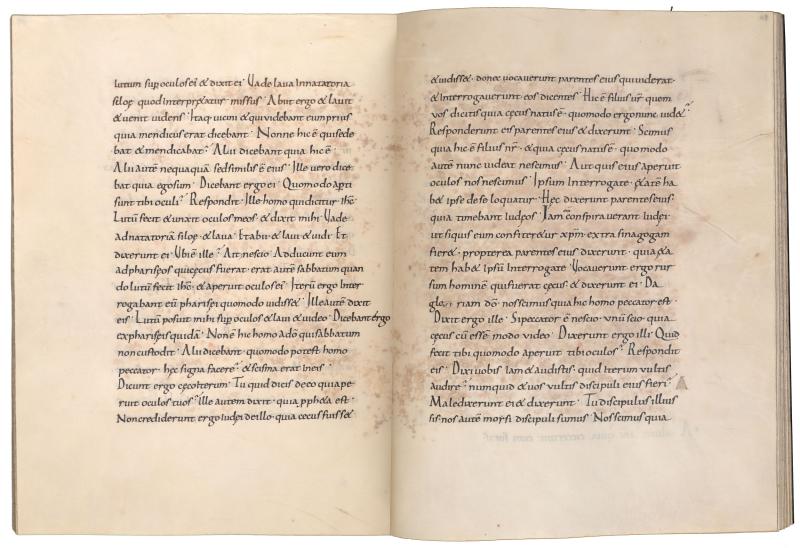 lutum sup oculos ei & dixit ei Vade laua Innatatoria
siloę quod interpr&atur missus Abiit ergo & lauit
& uenit uidens Itaq uicini & qui uidebant eum prius
quia mendicus erat dicebant Nonne hic ē qui sede
bat & mendicabat Alii dicebant quia hic ē
Alii autē nequaquā sed similis ē eius Ille uero dice
bat quia ego sum Dicebant ergo ei Quomodo apti
sunt tibi oculi Respondit Ille homo qui dicitur ihc̄
Lutū fecit & unxit oculos meos & dixit mihi Vade
ad natatoriā siloę & laua Et abii & laui & uidi Et
dixerunt ei Vbi ē ille Ait nescio Adducunt eum
ad phariseos qui cęcus fuerat erat autē sabbatum quan
do lutū fecit ihc̄ & aperuit oculos ei Iterū ergo Inter
rogabant eū pharisei quomodo uidiss& Ille autē dixit
eis Lutū posuit mihi sup oculos & laui & uideo Dicebant ergo
ex phariseis quidā Non ē hic homo a dō qui sabbatum
non custodit Alii dicebant quomodo potest homo
peccator hęc signa facere & scisma erat in eis
Dicunt ergo cęco iterum Tu quid dicis de eo quia pe
ruit oculos tuos Ille autem dixit quia ppheta est
Non crediderunt ergo iudęi de illo quia cęcus fuiss&
& uidiss& donec uocauerunt parentes eius qui uiderat
& interrogauerunt eos dicentes Hic ē filius ur̄ quem
vos dicitis quia cęcus natus ē quomodo ergo nunc uid&
Responderunt eis parentes eius & dixerunt Scimus
quia hic ē filius nr̄ & quia cęcus natus ē quomodo
autē nunc uideat nescimus Aut quis eius aperuit
oculos nos nescimus Ipsum Interrogate &atē ha
b& ipse de se loquatur Hęc dixerunt parentes eius
quia timebant iudęos Iam cōspirauerant iudęi
ut si quis eum confiter&ur xp̄m extra sinagogam
fier& propterea parentes eius dixerunt quia &a
tem hab& ipsū Interrogate Vocauerunt ergo rur
sum hominē qui fuerat cęcus & dixerunt ei Da
gloriam dō nos scimus quia hic homo peccator est
Dixit ergo ille Si peccator ē nescio unū scio quia
cęcus cū essē modo video Dixerunt ergo illi Quid
fecit tibi quomodo aperuit tibi oculos Respondit
eis Dixi uobis iam & audistis quid iterum vultis
audire numquid & uos vultis discipuli eius fieri
Maledixerunt ei & dixerunt Tu discipulus illius
sis nos autē moysi discipuli sumus Nos scimus quia